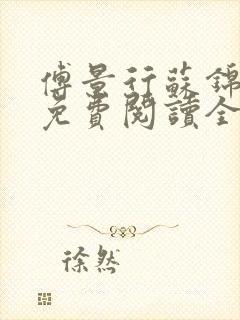 傅景行蘇錦
免費閱讀全
徐然